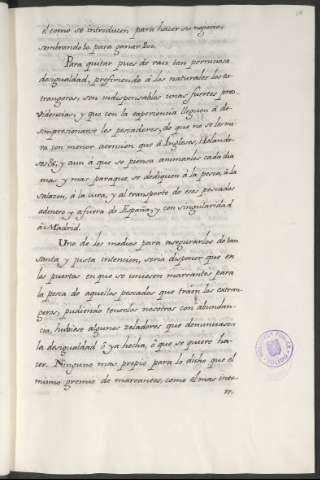 él como se introducen para hacer su negocio,
sembrando lo para ganar
Para quitar pues de raiz tan perniciosa
desigualdad, prefiriendo á los naturales los es-
trangeros, son indispensables unas fuertes pro-
videncias, y que con la experiencia lleguen á de-
simpresionarse los pescadores, de que no se les mi-
ra con menor atencion que á Ingleses, Holande-
ses &c, y aun á que se piensa animarlos cada dia
mas y mas para que se dediquen á la pesca, á la
salazon, á la cura, y al transporte de esos pescados
adentro y afuera de España, y con singularidad
á Madrid.
Uno de los medios para asegurarlos de tan
santa y justa intencion, seria disponer que en
los puertos en que se unieren mareantes para
la pesca de aquellos pescados que traen los extran-
geros, pudiendo tenerlos nosotros con abundan-
cia, hubiese algunos zeladores que denunciasen
la desigualdad ó ya hecha, ó que se quiere ha-
cer. Ninguno mas propio para lo dicho que el
mismo gremio de mareantes, como el mas inte-